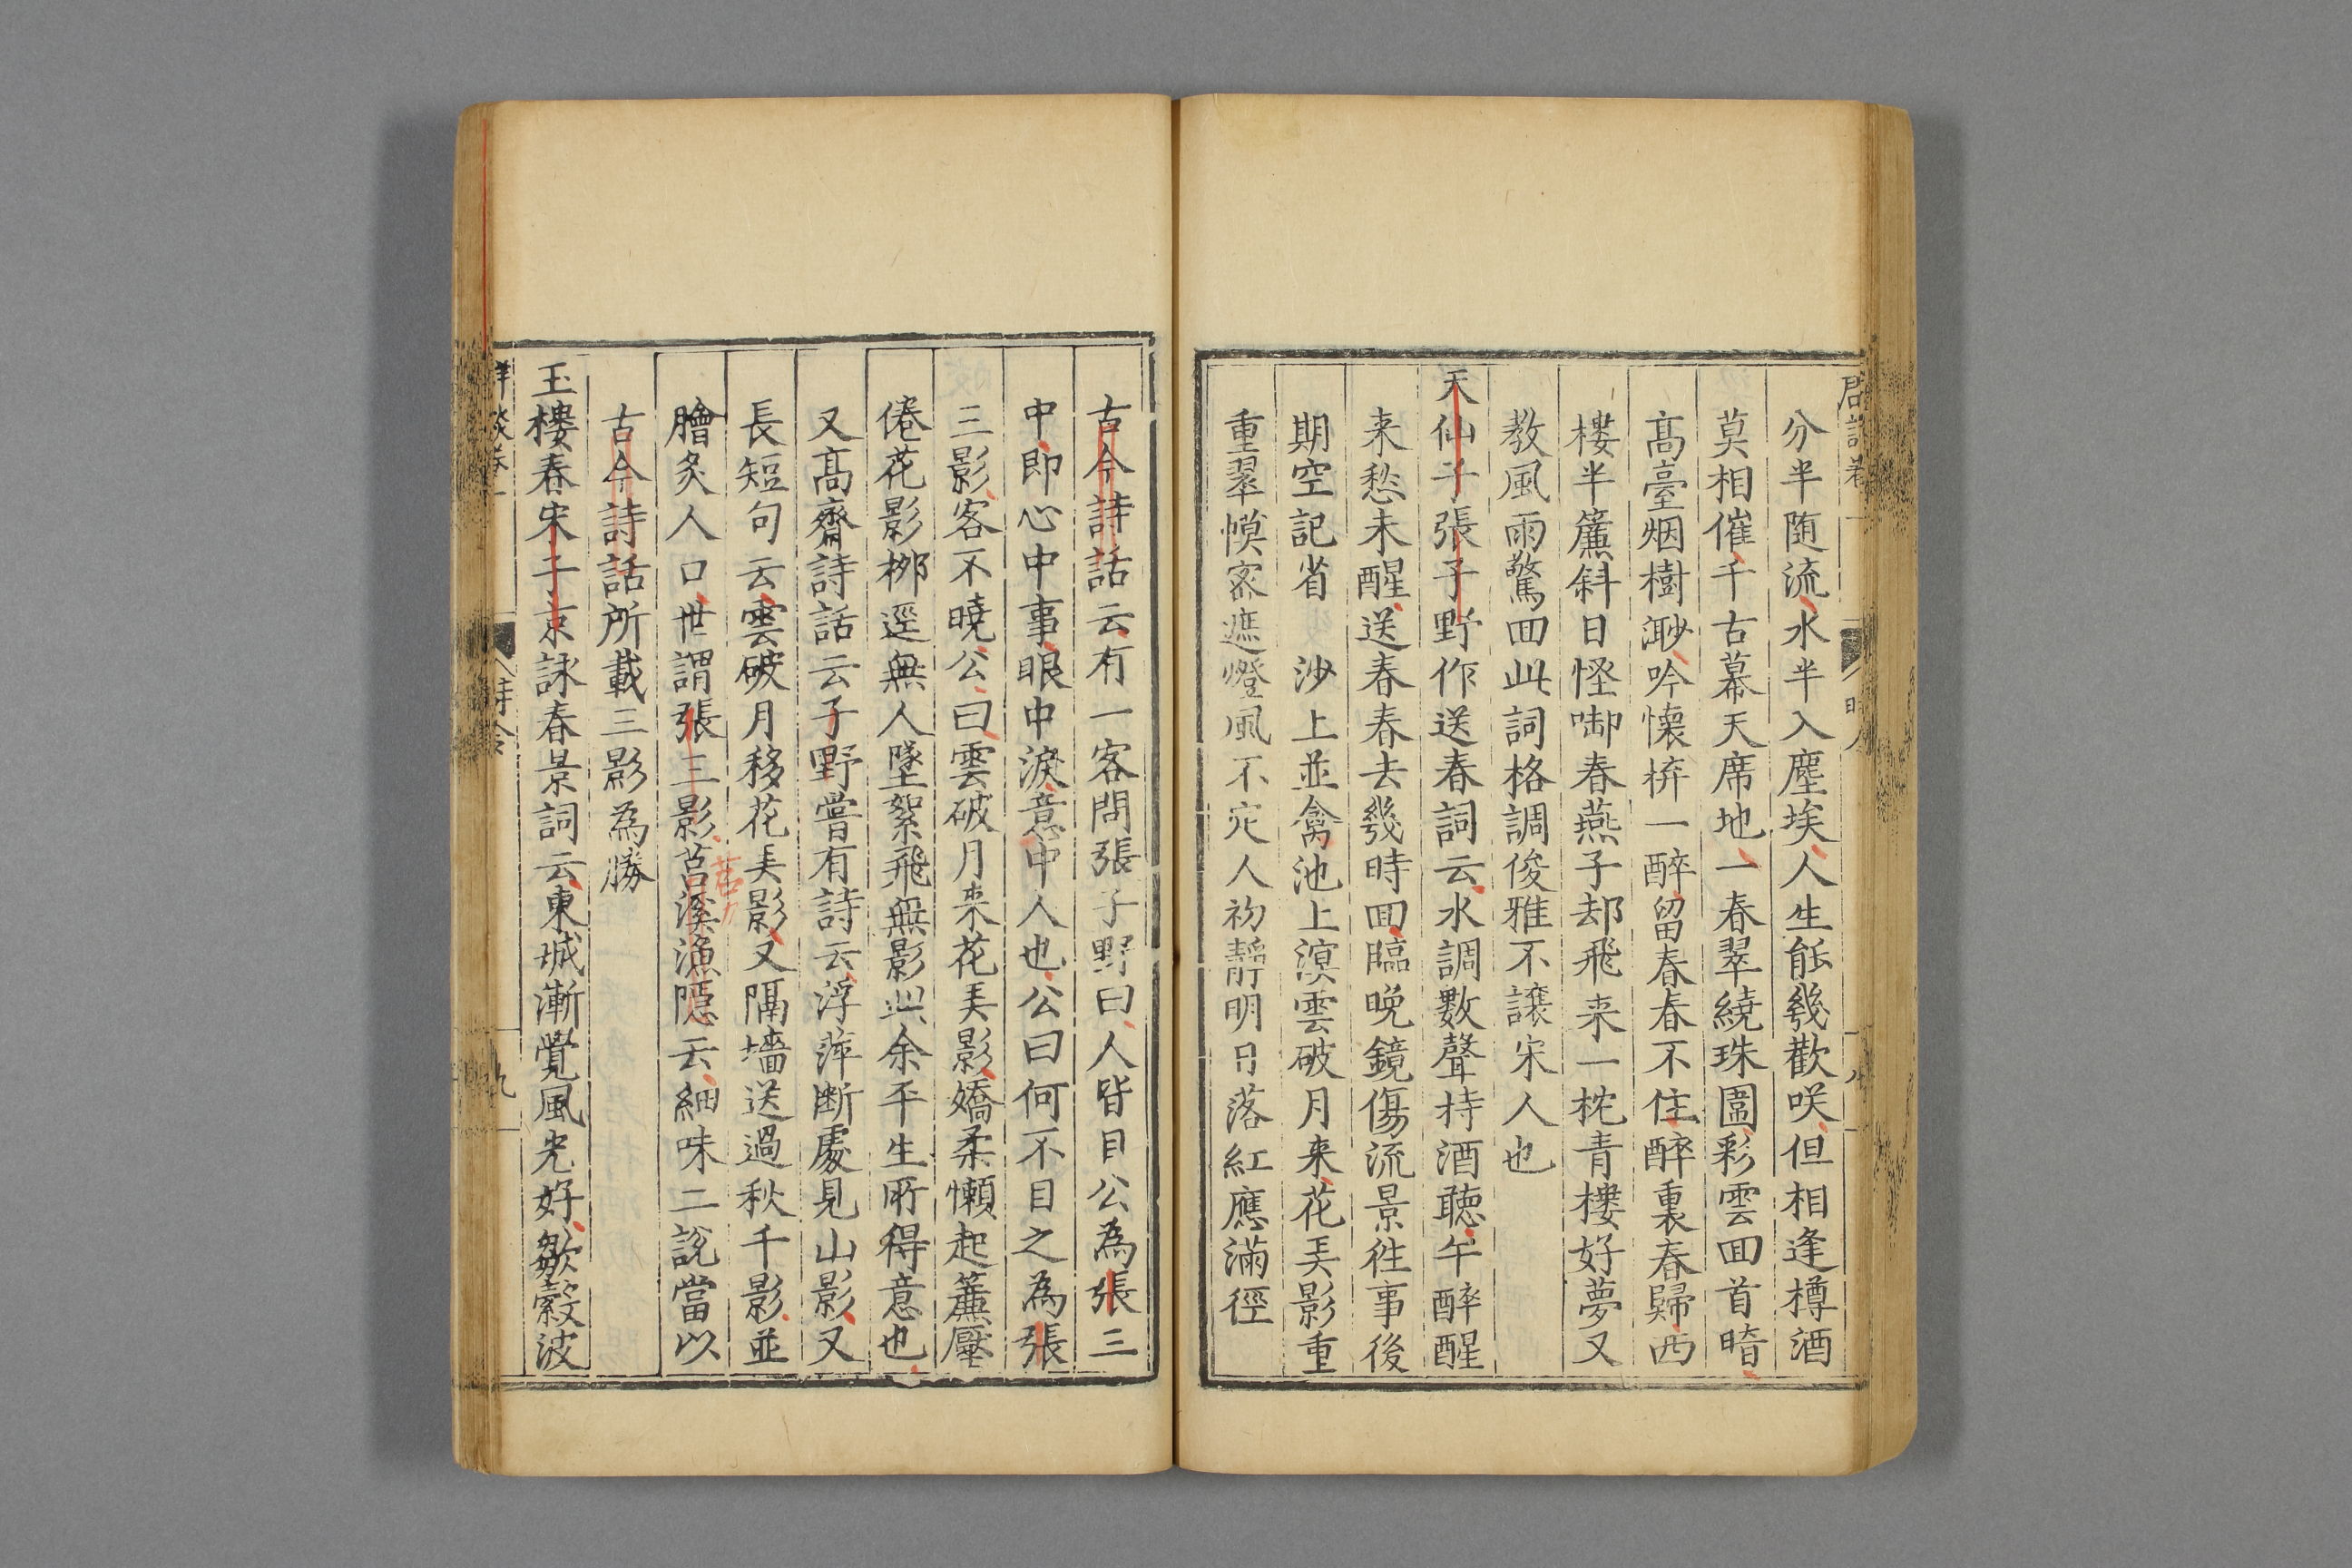 分半随流水半入塵埃人生能㡬歡咲但相逢樽酒
莫相催千古幕天席地一春翠繞珠圍彩雲囬首暗
髙臺烟樹渺吟懐拚一醉留春春不住醉裏春歸西
樓半簾斜日怪啣春燕子却飛来一枕青樓好夢又
教風雨驚囬此詞格調俊雅不譲宋人也
天仙子張子野作送春詞云水調數聲持酒聴午醉醒
来愁未醒送春春去㡬時囬臨晚鏡傷流景徃事後
期空記省　沙上並禽池上溟雲破月来花弄影重
重翠幙宻遮燈風不定人初靜明日落紅應滿徑
古今詩話云有一客問張子野曰人皆目公為張三
中即心中事眼中淚意中人也公曰何不目之為張
三影客不曉公曰雲破月来花弄影嬌柔懶起簾壓
倦花影栁逕無人墜絮飛無影此余平生所得意也
又髙齋詩話云子野嘗有詩云浮萍断處見山影又
長短句云雲破月移花弄影又隔墻送過秋千影並
膾炙人口世謂張三影苕溪漁隠云細味二說當以
古今詩話所載三影為勝
玉樓春宋子京詠春景詞云東城漸覺風光好皺縠波